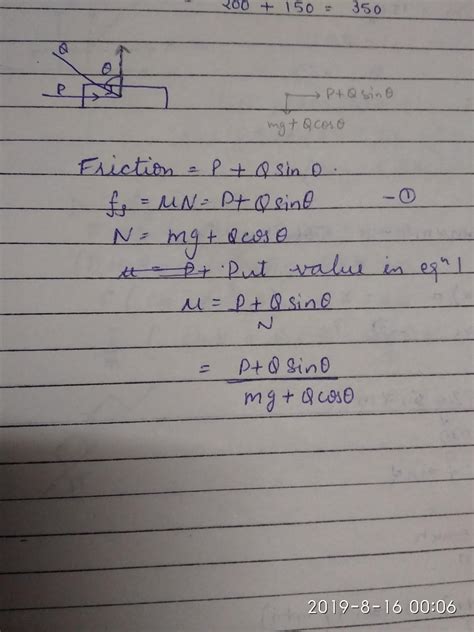 200 + 150 = 350
Q
θ
P
P+Qsinθ
mg+Qcosθ
Friction = P + Q sin θ.
fs = μN = P+Qsinθ -①
N = mg+Qcosθ
μ = P+ Put value in eqⁿ 1
μ = P+Qsinθ
N
= P+Qsinθ
mg+Qcosθ
2019-8-16 00:06